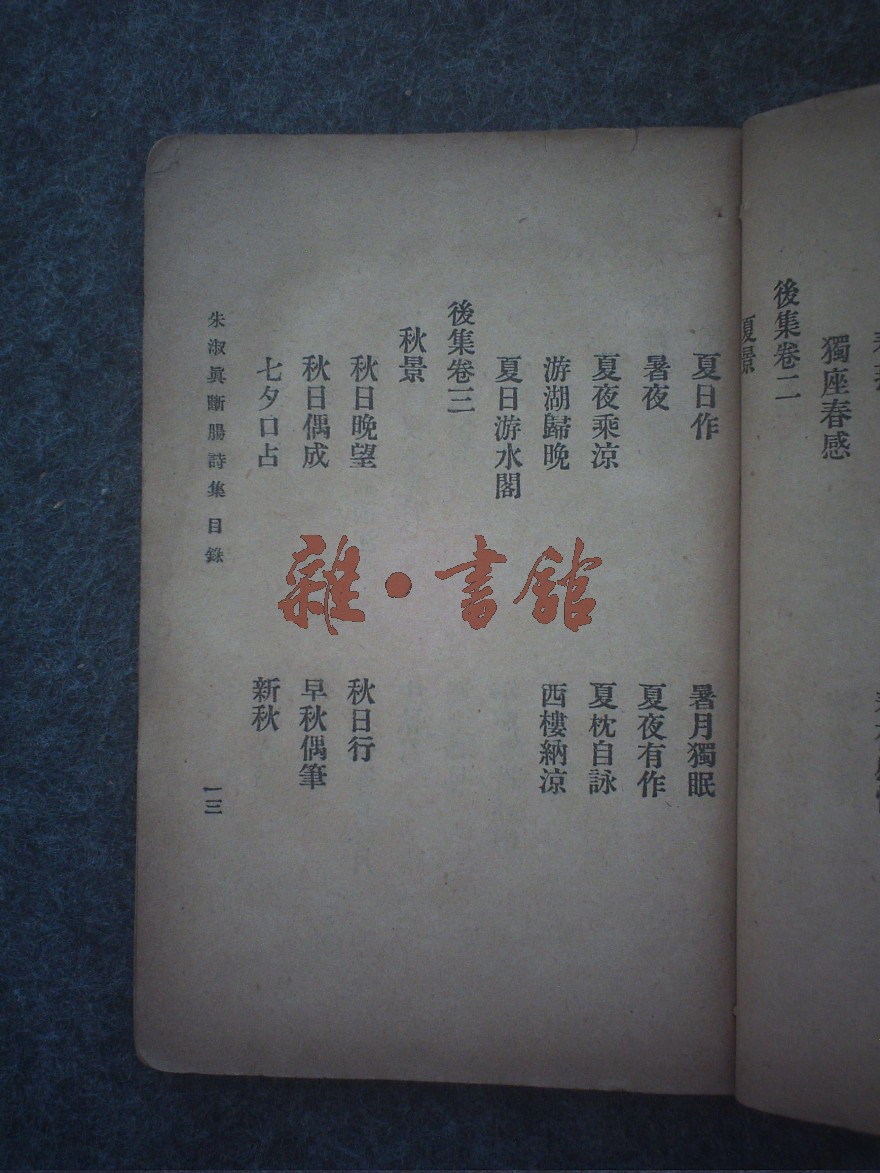 獨座春感
後集卷二
夏景
夏日作
暑月獨眠
暑夜
夏夜有作
夏夜乘涼
夏枕自詠
游湖歸晚
西樓納涼
夏日游水閣
後集卷三
秋景
秋日晚望
秋日行
秋日偶成
早秋偶筆
七夕口占
新秋
朱淑眞斷腸詩集 目錄
一三
雜·書館